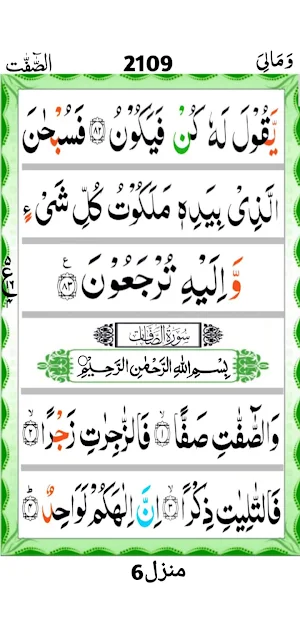 وَمَالِیَ 2109 الصّٰٓفّٰت
یَّقُوْلَ لَهٗ كُنْ فَیَكُوْنُ ﴿۸۲﴾ فَسُبْحٰنَ
الَّذِیْ بِیَدِهٖ مَلَكُوْتُ كُلِّ شَیْءٍ
وَّ اِلَیْهِ تُرْجَعُوْنَ ﴿۸۳﴾ ع
سُوْرَةُ الصَّافَّات
بِسْمِ اللهِ الرَّحْمٰنِ الرَّحِیْمِ
وَالصّٰٓفّٰتِ صَفًّا ﴿۱﴾ فَالزّٰجِرٰتِ زَجْرًا ﴿۲﴾
فَالتّٰلِیٰتِ ذِكْرًا ﴿۳﴾ اِنَّ اِلٰهَكُمْ لَوَاحِدٌ ﴿۴﴾
منزل 6